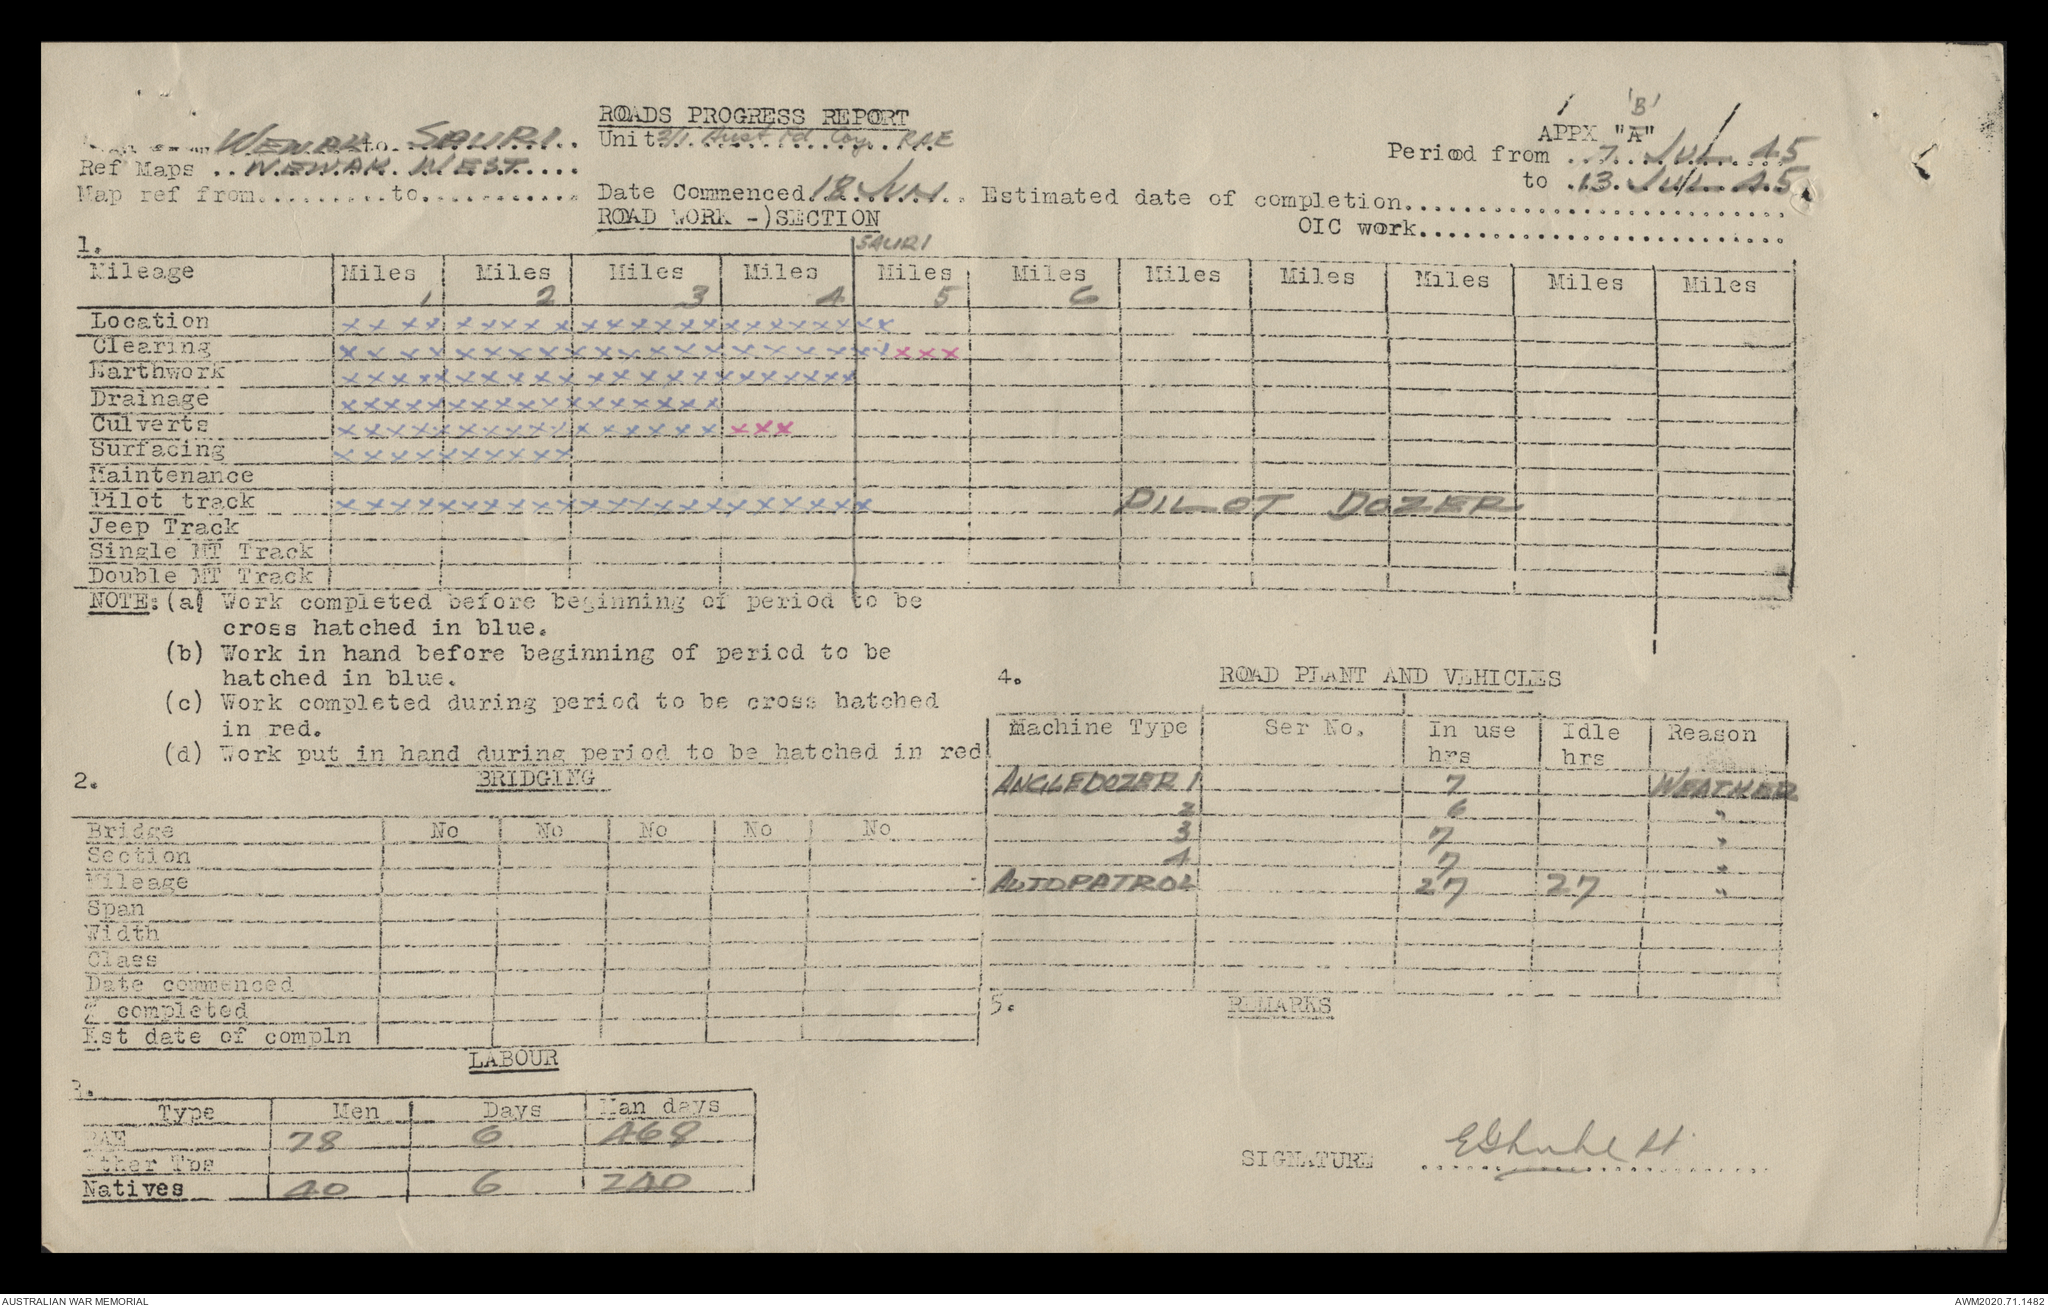 ROADS PROGRESS REPORT
'B'
APPX "A"
WEWAK to SAURI
Unit 2/1 Aust Fd Coy RAE
Period from 7 JUL 45
Ref Maps WEWAK WEST
to 13 JUL 45
Map ref from..........to............
Date Commenced 18 JUN
Estimated date of completion
OIC work
ROAD WORK -)SECTION
1.
SAURI
Mileage Miles 1 Miles 2 Miles 3 Miles 4 Miles 5 Miles 6 Miles Miles Miles Miles Miles
Location x x x x x x x x x x x x x x x x x x x x x x
Clearing x x x x x x x x x x x x x x x x x x x x x x x
Earthwork x x x x x x x x x x x x x x x x x x x x x
Drainage x x x x x x x x x x x x x x x x
Culverts x x x x x x x x x x x x x x x x x x x
Surfacing x x x x x x x x x x
Maintenance
Pilot track x x x x x x x x x x x x x x x x x x x x PILOT DOZER
Jeep Track
Single MT Track
Double MT Track
NOTE: (a) Work completed before beginning of period to be
cross hatched in blue.
(b) Work in hand before beginning of period to be
hatched in blue.
(c) Work completed during period to be cross hatched
in red.
(d) Work put in hand during period to be hatched in red
2. BRIDGING
Bridge No No No No No
Section
Mileage
Span
Width
Class
Date commenced
% completed
Est date of compln
LABOUR
3.
Type Men Days Man days
RAE 78 6 468
Other Tps
Natives 40 6 240
4. ROAD PLANT AND VEHICLES
Machine Type Ser No. In use hrs Idle hrs Reason
ANGLEDOZER 1 7 WEATHER
2 6 "
3 7 "
4 7 "
AUTOPATROL 27 27 "
5. REMARKS
SIGNATURE
AUSTRALIAN WAR MEMORIAL
AWM2020.71.1482